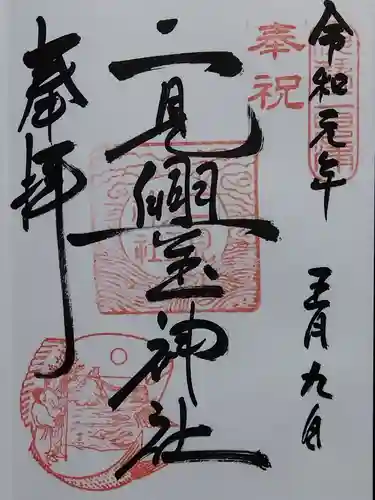 令和元年
五月九日
奉祝
二見興玉神社
奉拝